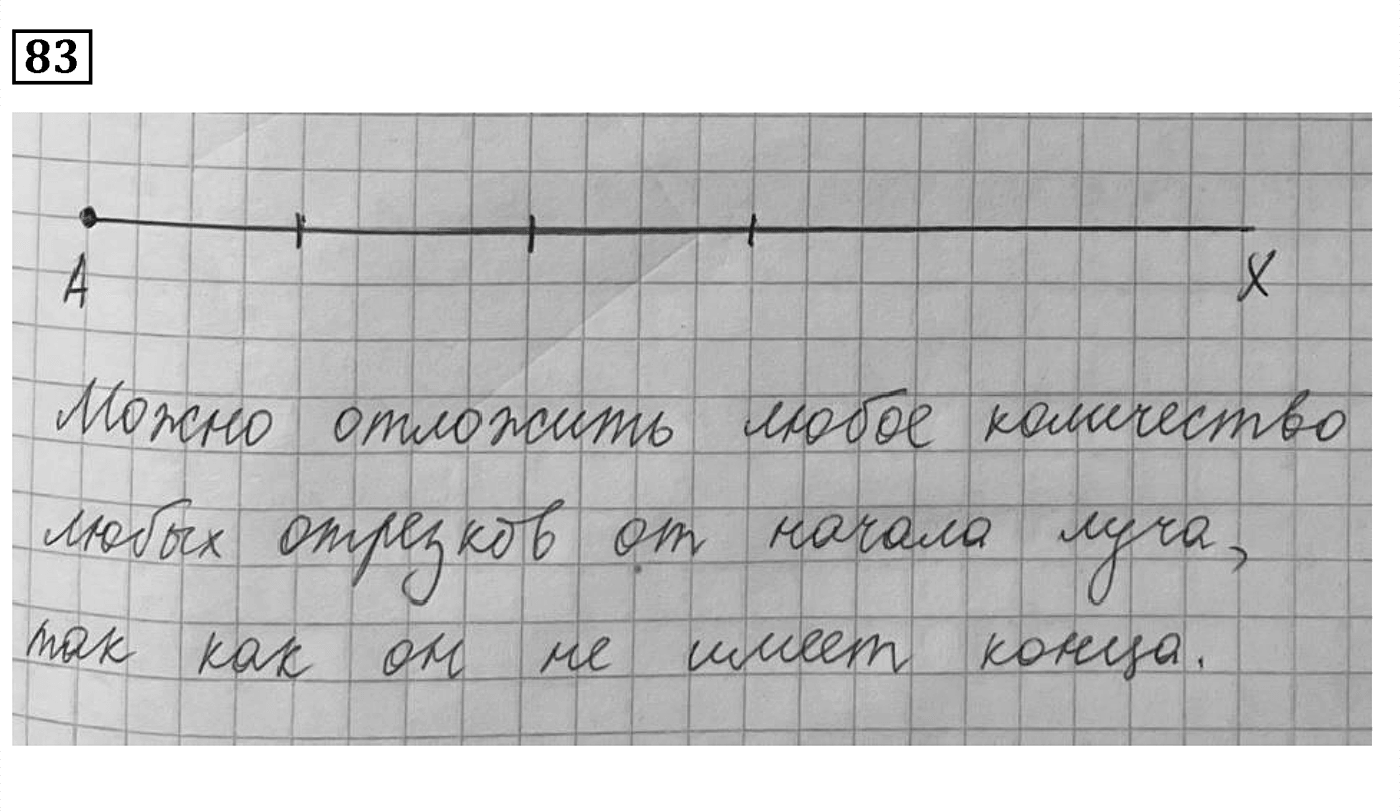 83
А
Х
Можно отложить любое количество
любых отрезков от начала луча,
так как он не имеет конца.